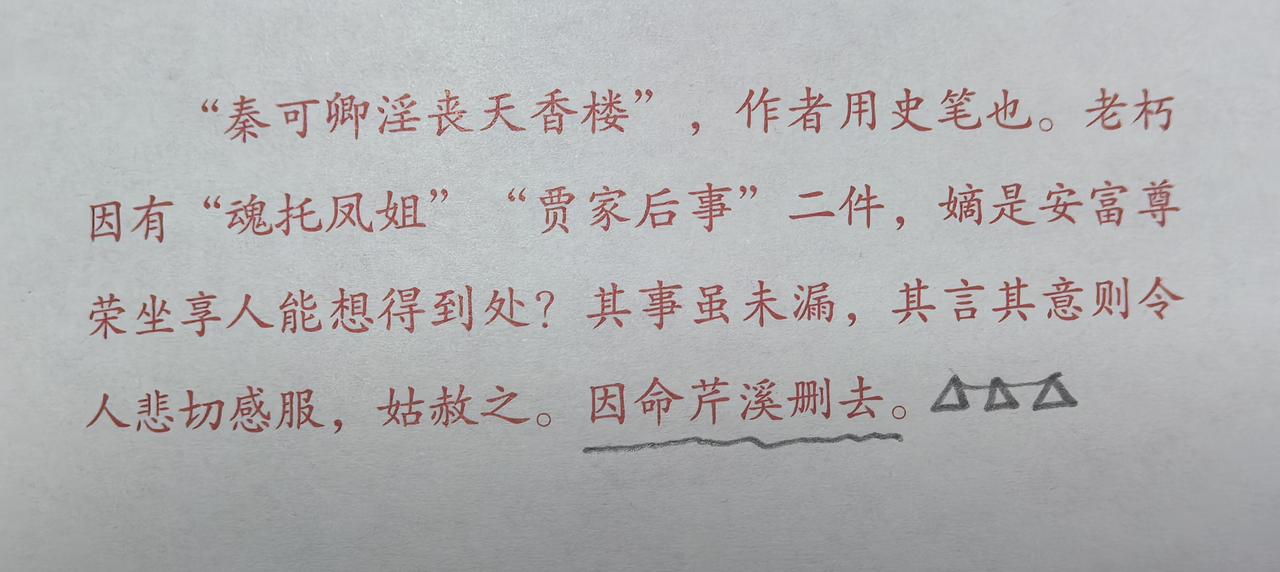 “秦可卿淫丧天香楼”，作者用史笔也。老朽
因有“魂托凤姐”“贾家后事”二件，嫡是安富尊
荣坐享人能想得到处？其事虽未漏，其言其意则令
人悲切感服，姑赦之。因命芹溪删去。